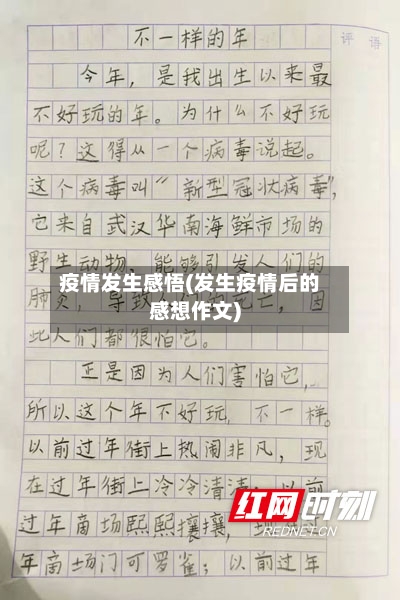 不一样的年
评语
今年，是我出生以来最
不好玩的年。为什么不好玩
呢？这得从一个病毒说起。
这个病毒叫“新型冠状病毒”，
它来自武汉华南海鲜市场的
野生动物，能够引发人们的
疫情发生感悟(发生疫情后的
感想作文)
肺炎，导致 死亡，因
此人们都很怕它。
正是因为人们害怕它，
所以这个年不好玩，不一样。
以前过年街上热闹非凡，现
在过年街上冷冷清清；以前
过年商场熙熙攘攘，现
年商场门可罗雀；以前过年
红网时刻
REDNET.CN